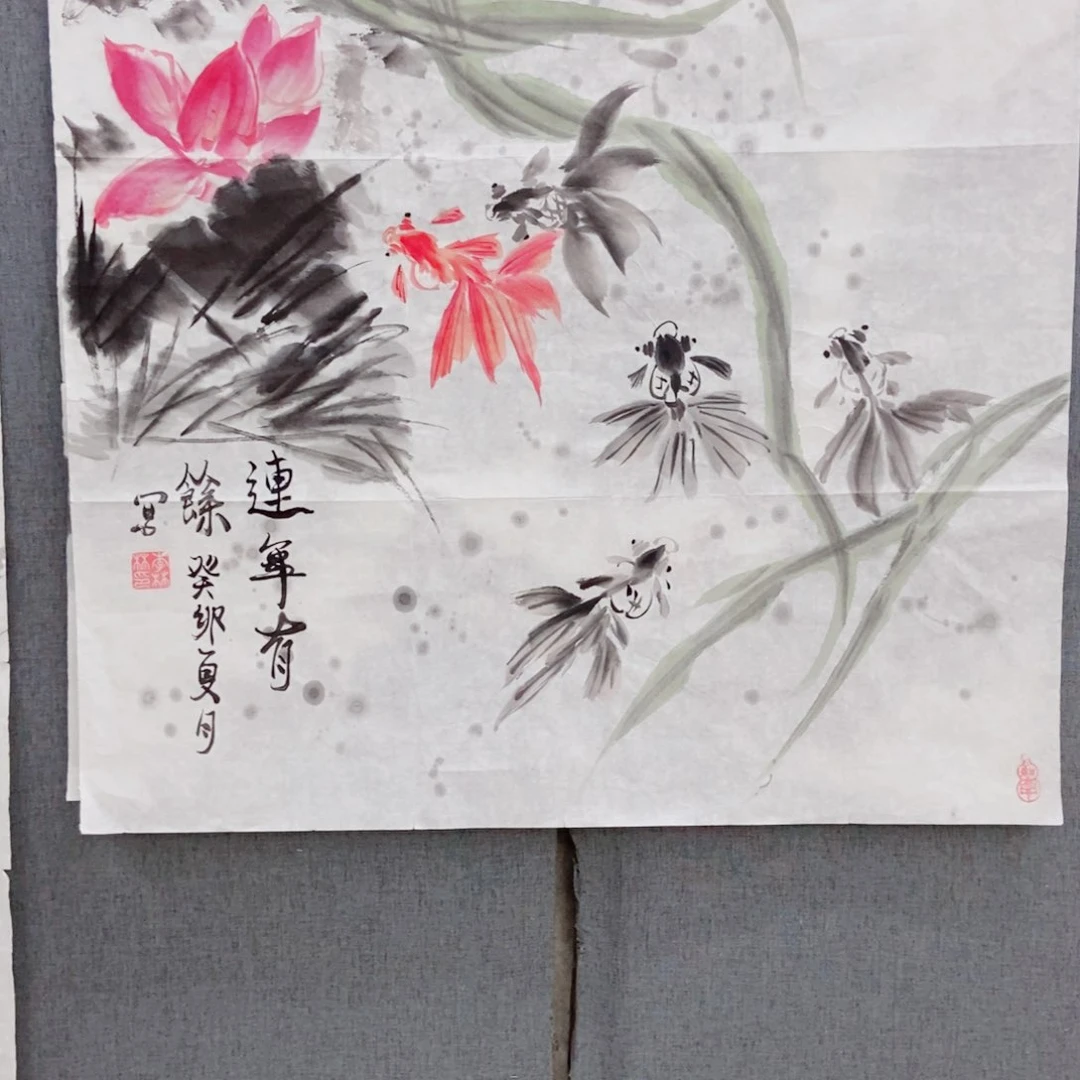 連年有
餘 癸卯夏月
寫